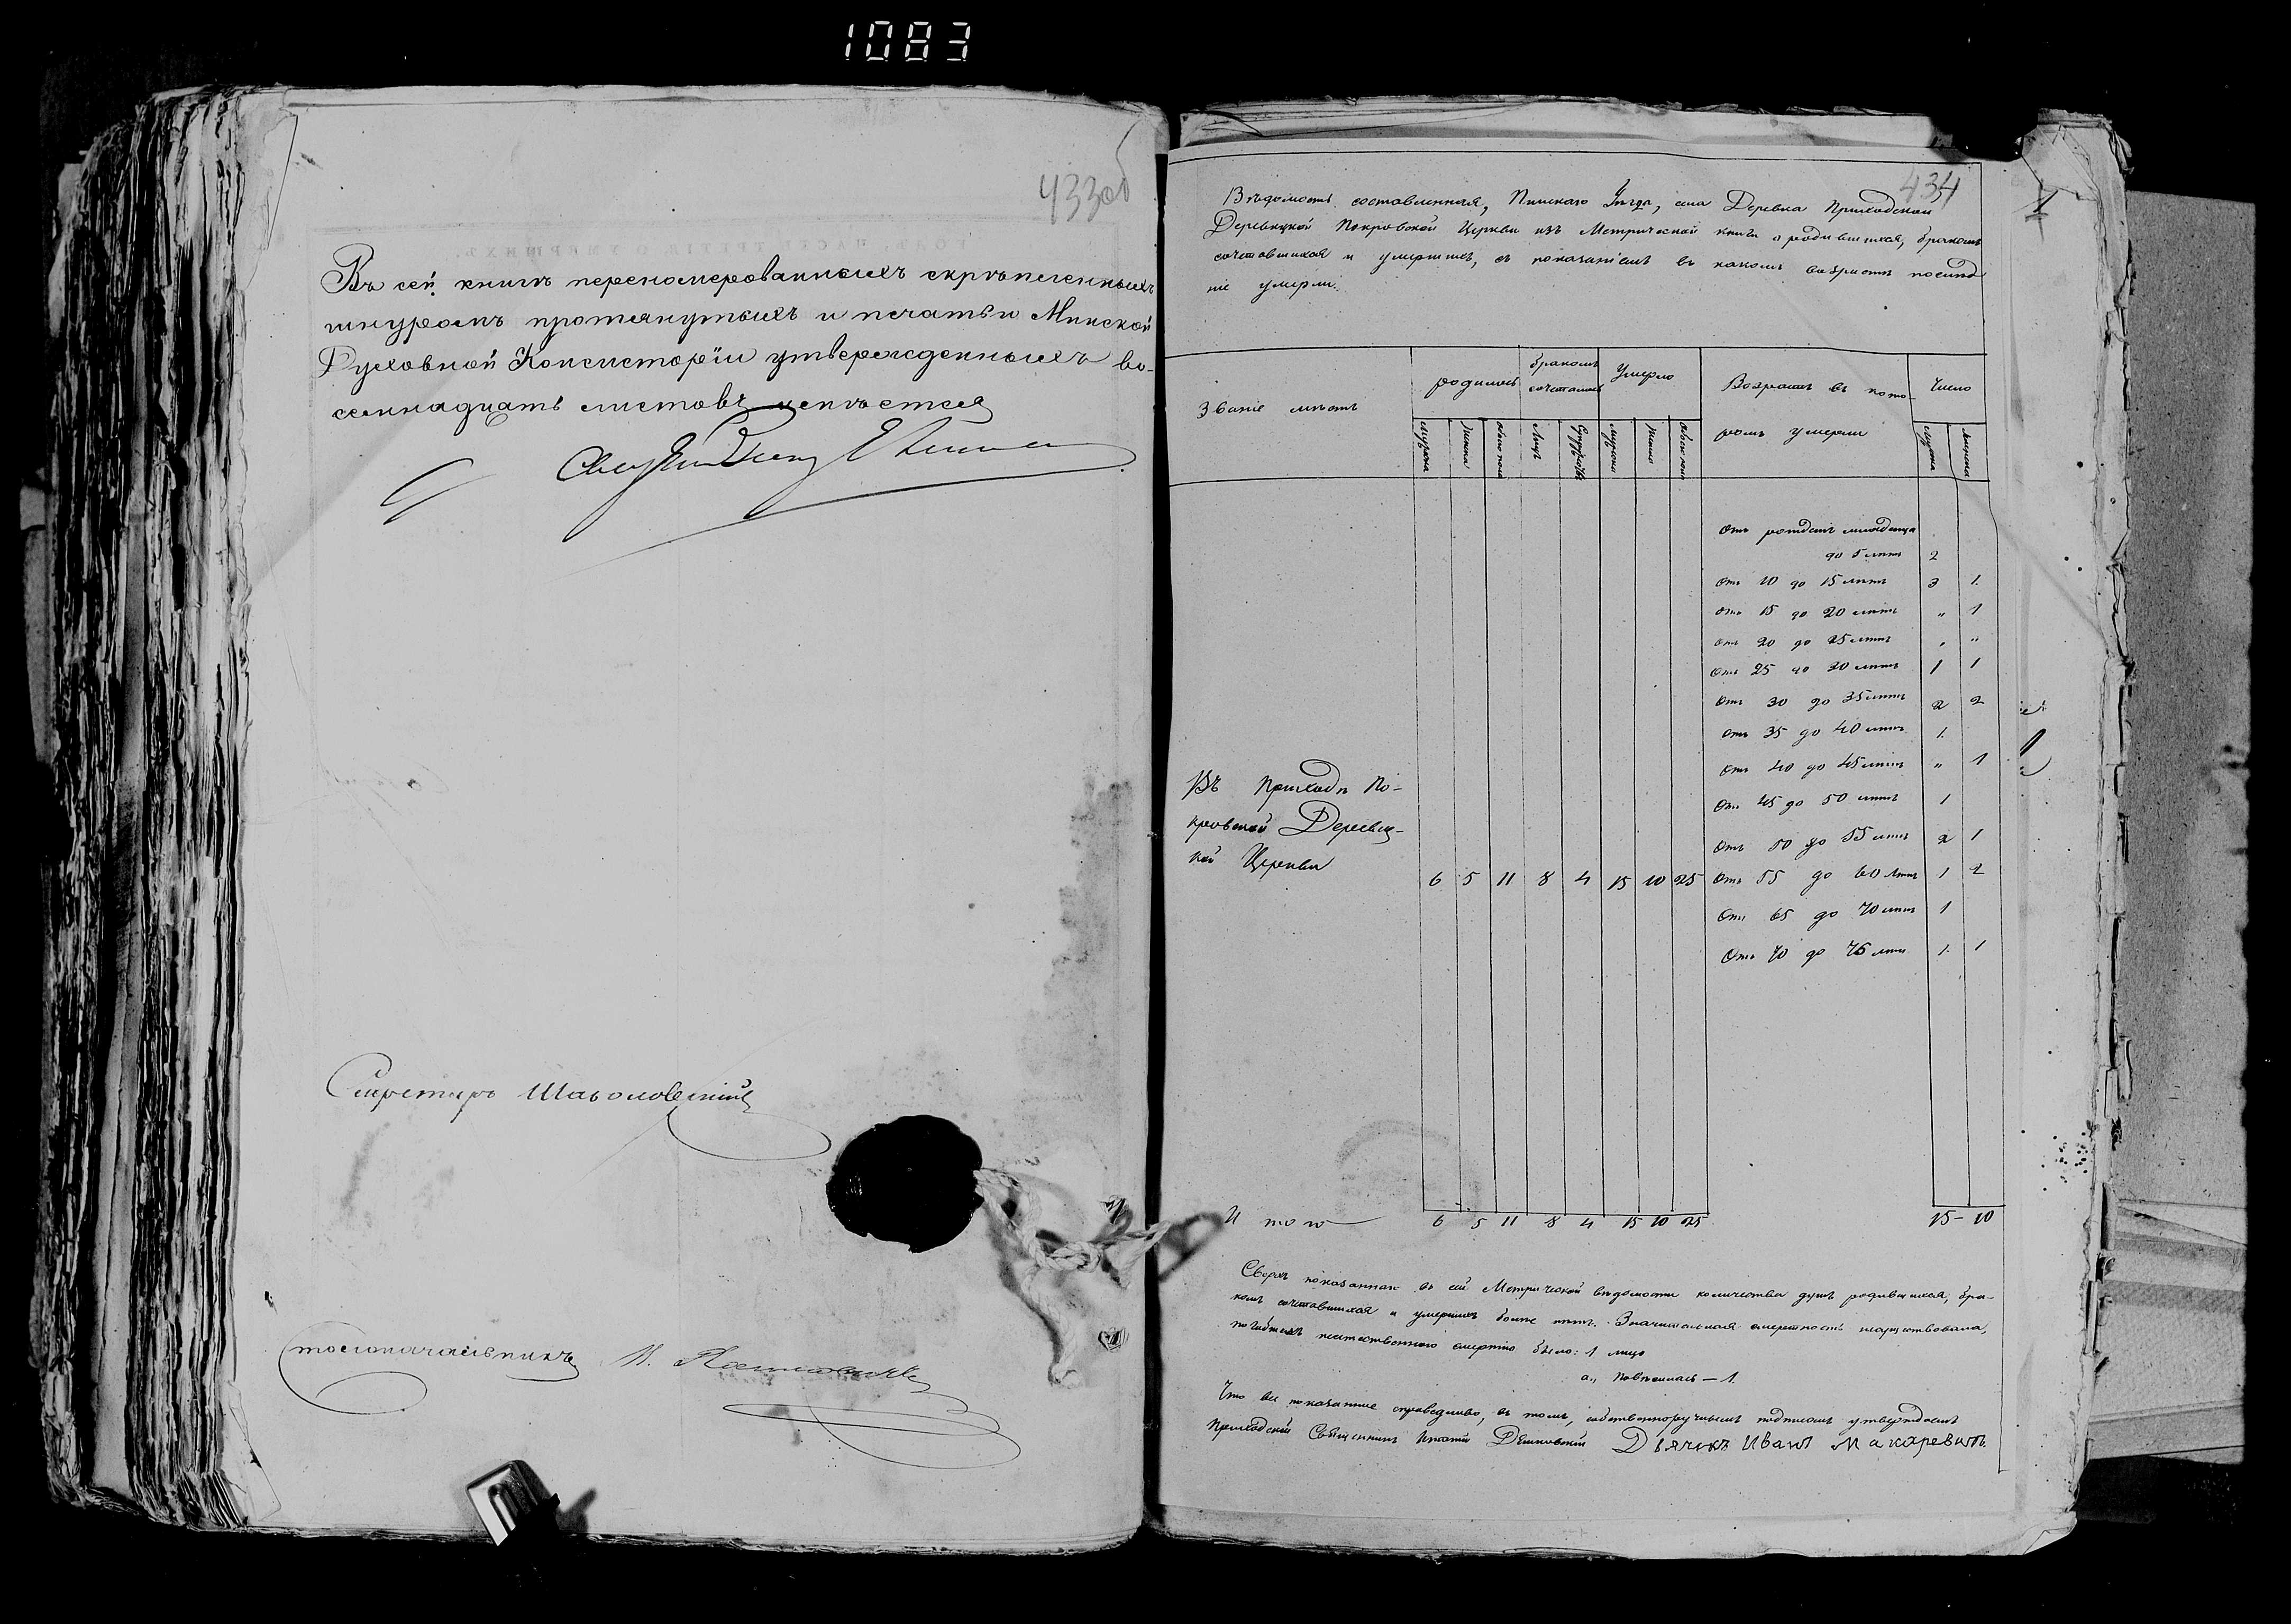 1083
433об
Въ сей книгѣ перенумерованныхъ скрѣпленныхъ
шнуромъ протянутыхъ и печатью Минской
Духовной Консисторіи утвержденныхъ во-
семнадцать листовъ имѣется
Секретарь
Столоначальникъ
434
1
Вѣдомость составленная, Пинскаго Уѣзда, села Деревка Приходской
Деревнуской Покровской Церкви изъ Метрической книги о родившихся, бракомъ
сочетавшихся и умершихъ, съ показаніемъ въ какомъ возрастѣ послѣд
ніе умерли.
Званіе мѣстъ
родилось
бракомъ сочеталось
Умерло
Возрастъ въ кото-
ромъ умерли
Число
мужска
женска
обоего пола
Лицъ
Супружествъ
мужска
женска
обоего пола
мужска
женска
Отъ рожденія младенца
до 5 лѣтъ 2
Отъ 10 до 15 лѣтъ 3 1
Отъ 15 до 20 лѣтъ " 1
Отъ 20 до 25 лѣтъ " "
Отъ 25 до 30 лѣтъ 1 1
Отъ 30 до 35 лѣтъ 2 2
Отъ 35 до 40 лѣтъ 1
Отъ 40 до 45 лѣтъ " 1
Отъ 45 до 50 лѣтъ 1
Отъ 50 до 55 лѣтъ 2 1
Въ Приходѣ По-
кровской Деревнус-
кой Церкви
6 5 11 8 4 15 10 25 Отъ 55 до 60 лѣтъ 1 2
Отъ 65 до 70 лѣтъ 1
Отъ 70 до 76 лѣтъ 1 1
Итого 6 5 11 8 4 15 10 25 15 - 10
Сверхъ показаннаго въ сей Метрической вѣдомости количества душъ родившихся, бра-
комъ сочетавшихся и умершихъ болѣе нѣтъ. Значительная смертность не существовала,
погибшихъ неестественною смертію было: 1 лицо
а., повѣсилась — 1.
Что все показанное справедливо, въ томъ, собственноручнымъ подписомъ утверждаемъ
Приходскій Священникъ Игнатій Дѣшковскій Дьячекъ Иванъ Макаревичъ